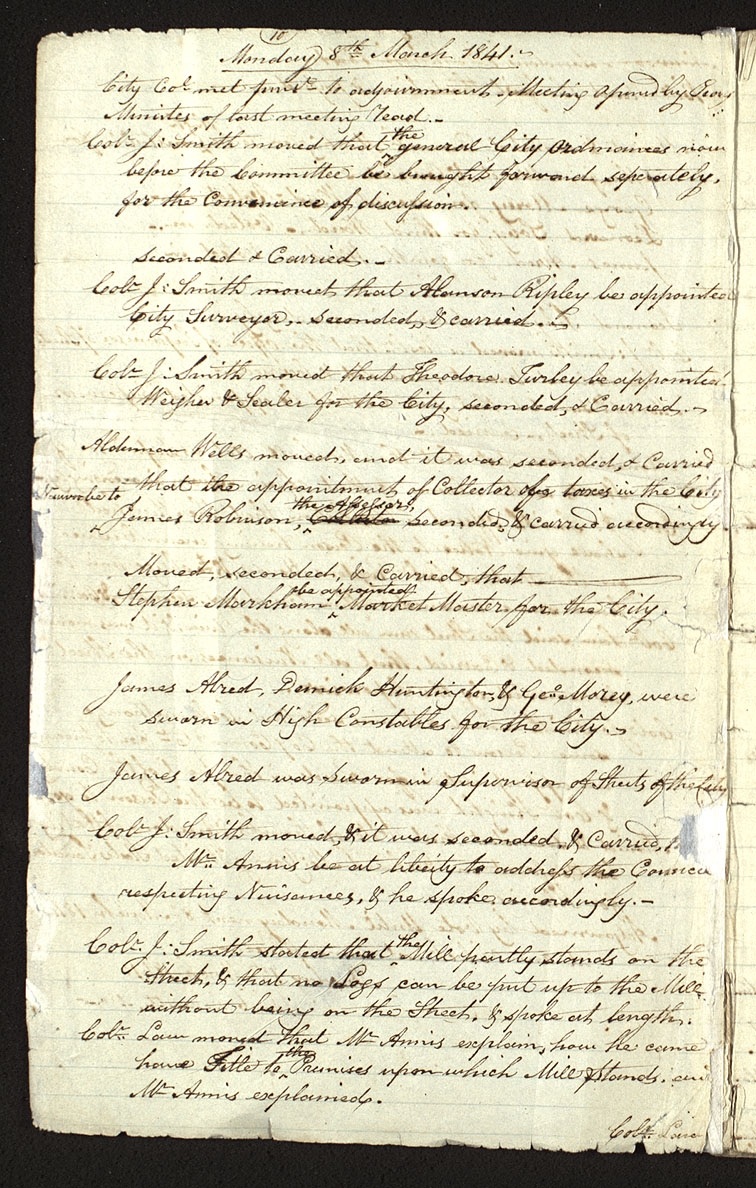 10
Monday 8th March 1841.
City Col met purst to adjournment. Meeting opened by
Minutes of last meeting read.
Colr J: Smith moved that the general City Ordinances now
before the Committee be brought forward seperately,
for the Convenience of discussion.
seconded & Carried.
Colr J: Smith moved that Alanson Ripley be appointed
City Surveyor, seconded, & carried.
Colr J: Smith moved that Theodore Turley be appointed
Weigher & Sealer for the City, seconded, & Carried.
Alderman Wells moved, and it was seconded, & Carried
that the appointment of Collector of taxes in the City
to
James Robinson, the Assessor, Collector seconded, & carried accordingly
Moved, seconded, & Carried, that
Stephen Markham be appointed Market Master for the City.
James Alred, Demick Huntington, & Geo. Morey, were
sworn in High Constables for the City.
James Alred was sworn in Supervisor of Streets of the City
Colr J: Smith moved, & it was seconded, & Carried,
Mr. Annis be at liberty to address the Council
respecting Nuisances, & he spoke accordingly.
Colr. J: Smith stated that the Mill partly stands on the
Street, & that no Logs can be put up to the Mill
without being on the Street, & spoke at length.
Colr. Law moved that Mr Annis explain, how he came
have Title to the Premises upon which Mill stands. and
Mr Annis explained.
Colr. Law